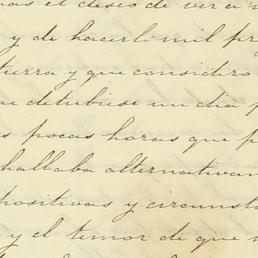 el deseo de ver a
y de hacerle mil
tierra y que considero
detubiese un dia
pocas horas que
hallaba alternativam
positivas y circunsta
y el temor de que